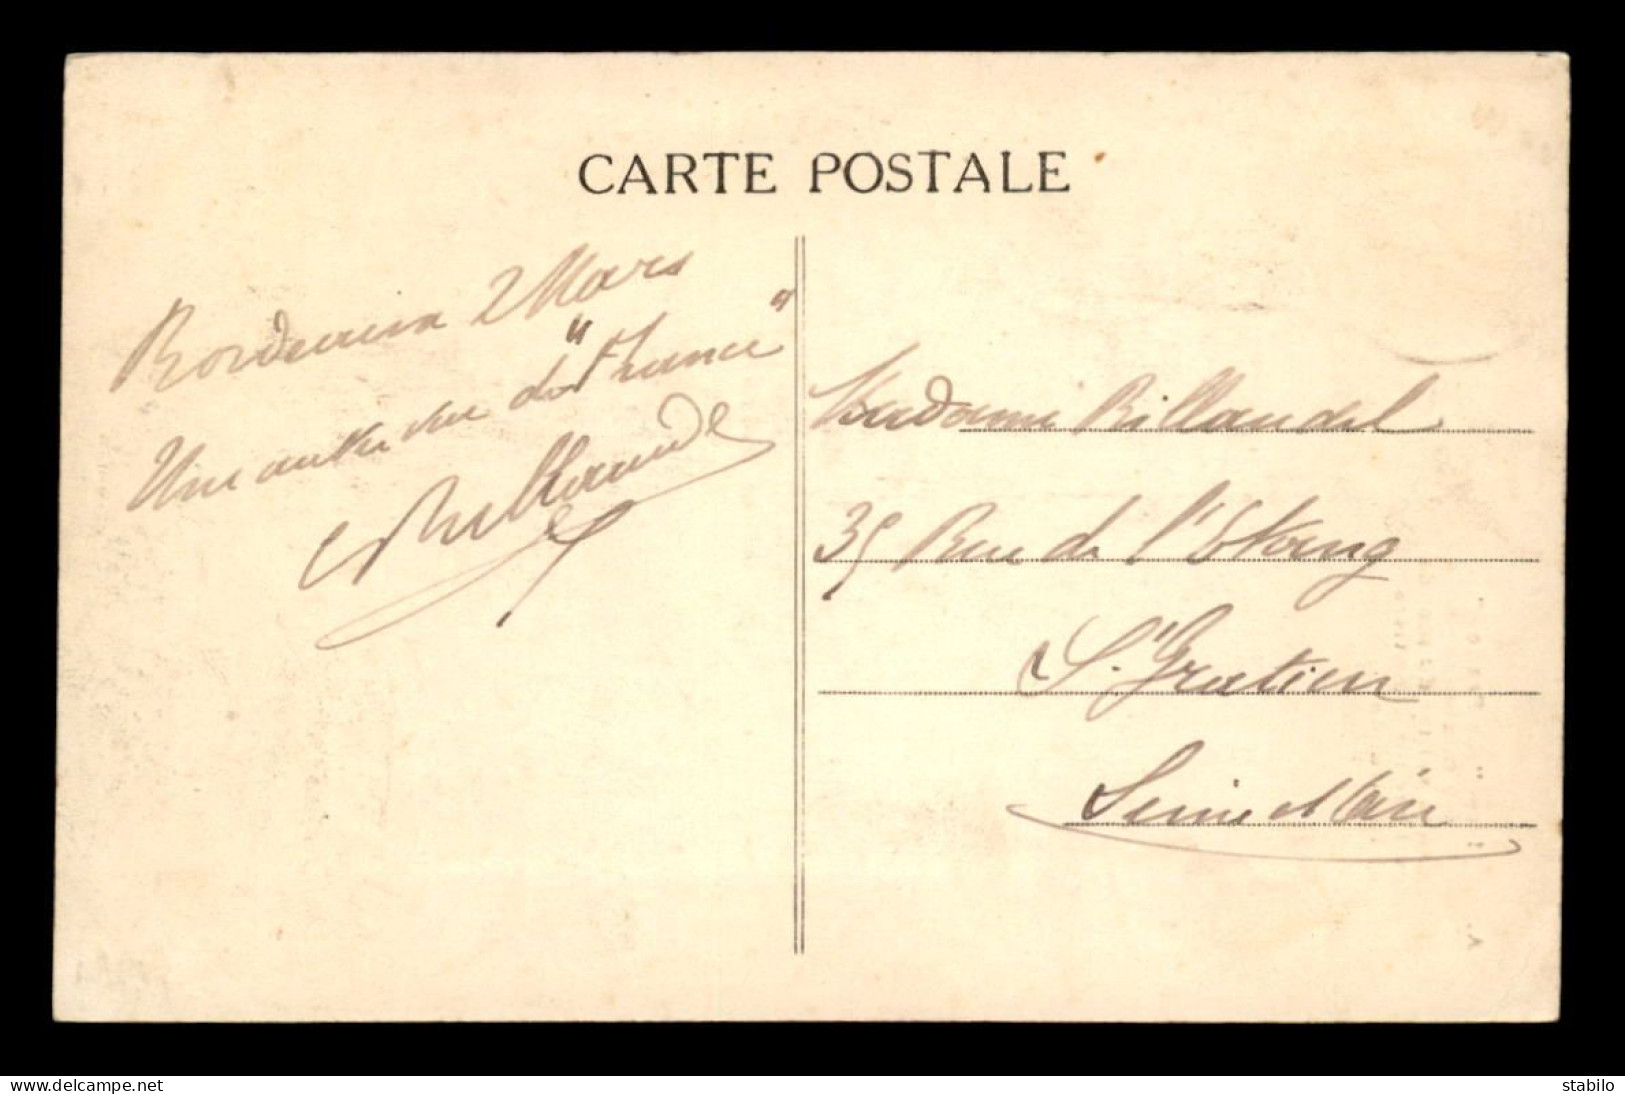 CARTE POSTALE
Bordeaux 2 Mars
Une autre vue du "France"
Billaudel
Madame Billaudel
35 Rue de l'Etang
St Gratien
Seine et Oise
delcampe.net
stabilo